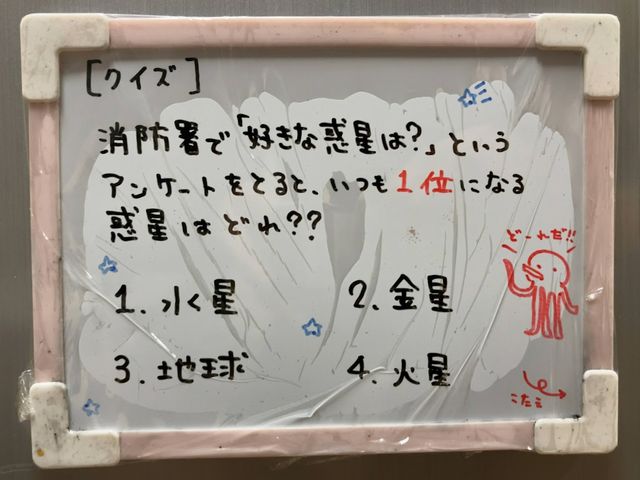 [クイズ]
消防署で「好きな惑星は?」という
アンケートをとると、いつも1位になる
惑星はどれ??
どーれだ!!
1. 水星
2. 金星
3. 地球
4. 火星
こたえ